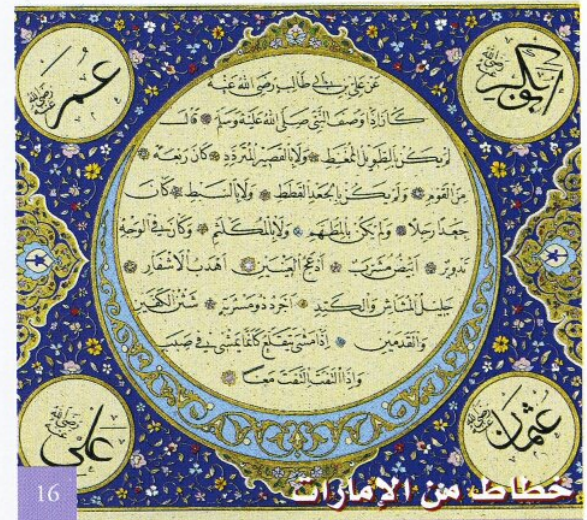 أبو بكر
رضي الله عنه
عمر
رضي الله عنه
عن علي بن أبي طالب رضي الله عنه
كان إذا وصف النبي صلى الله عليه وسلم قال
لم يكن بالطويل الممغط ولا بالقصير المتردد كان ربعة
من القوم ولم يكن بالجعد القطط ولا بالسبط كان
جعدا رجلا ولم يكن بالمطهم ولا بالمكلثم وكان في الوجه
تدوير أبيض مشرب أدعج العينين أهدب الأشفار
جليل المشاش والكتد أجرد ذو مسربة شثن الكفين
والقدمين إذا مشى يتقلع كأنما يمشي في صبب
وإذا التفت التفت معا
عثمان
رضي الله عنه
علي
رضي الله عنه
16
خطاط من الإمارات